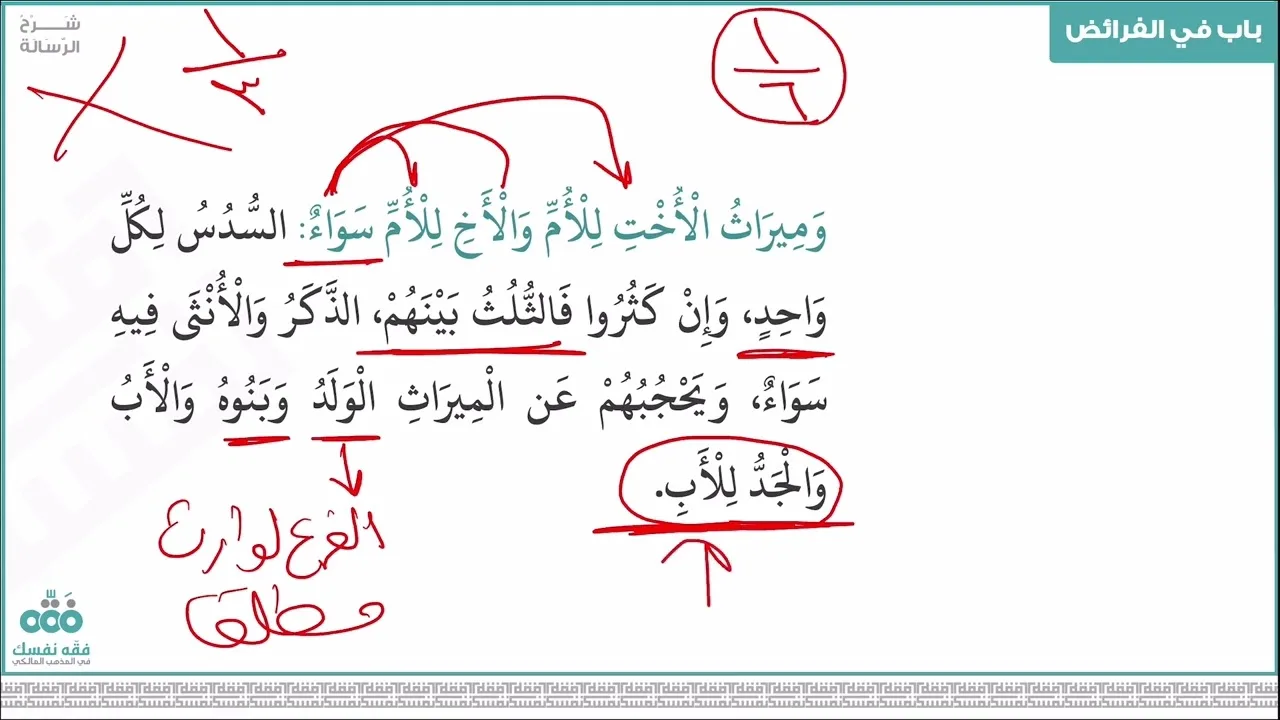 باب في الفرائض
شَرْحُ
الرِّسَالَة
١
٦
١
٣
وَمِيرَاثُ الْأُخْتِ لِلْأُمِّ وَالْأَخِ لِلْأُمِّ سَوَاءٌ: السُّدُسُ لِكُلِّ
وَاحِدٍ، وَإِنْ كَثُرُوا فَالثُّلُثُ بَيْنَهُمْ، الذَّكَرُ وَالْأُنْثَى فِيهِ
سَوَاءٌ، وَيَحْجُبُهُمْ عَن الْمِيرَاثِ الْوَلَدُ وَبَنُوهُ وَالْأَبُ
وَالْجَدُّ لِلْأَبِ.
الفرع لوارث
مطلقا
فقّه نفسك
في المذهب المالكي